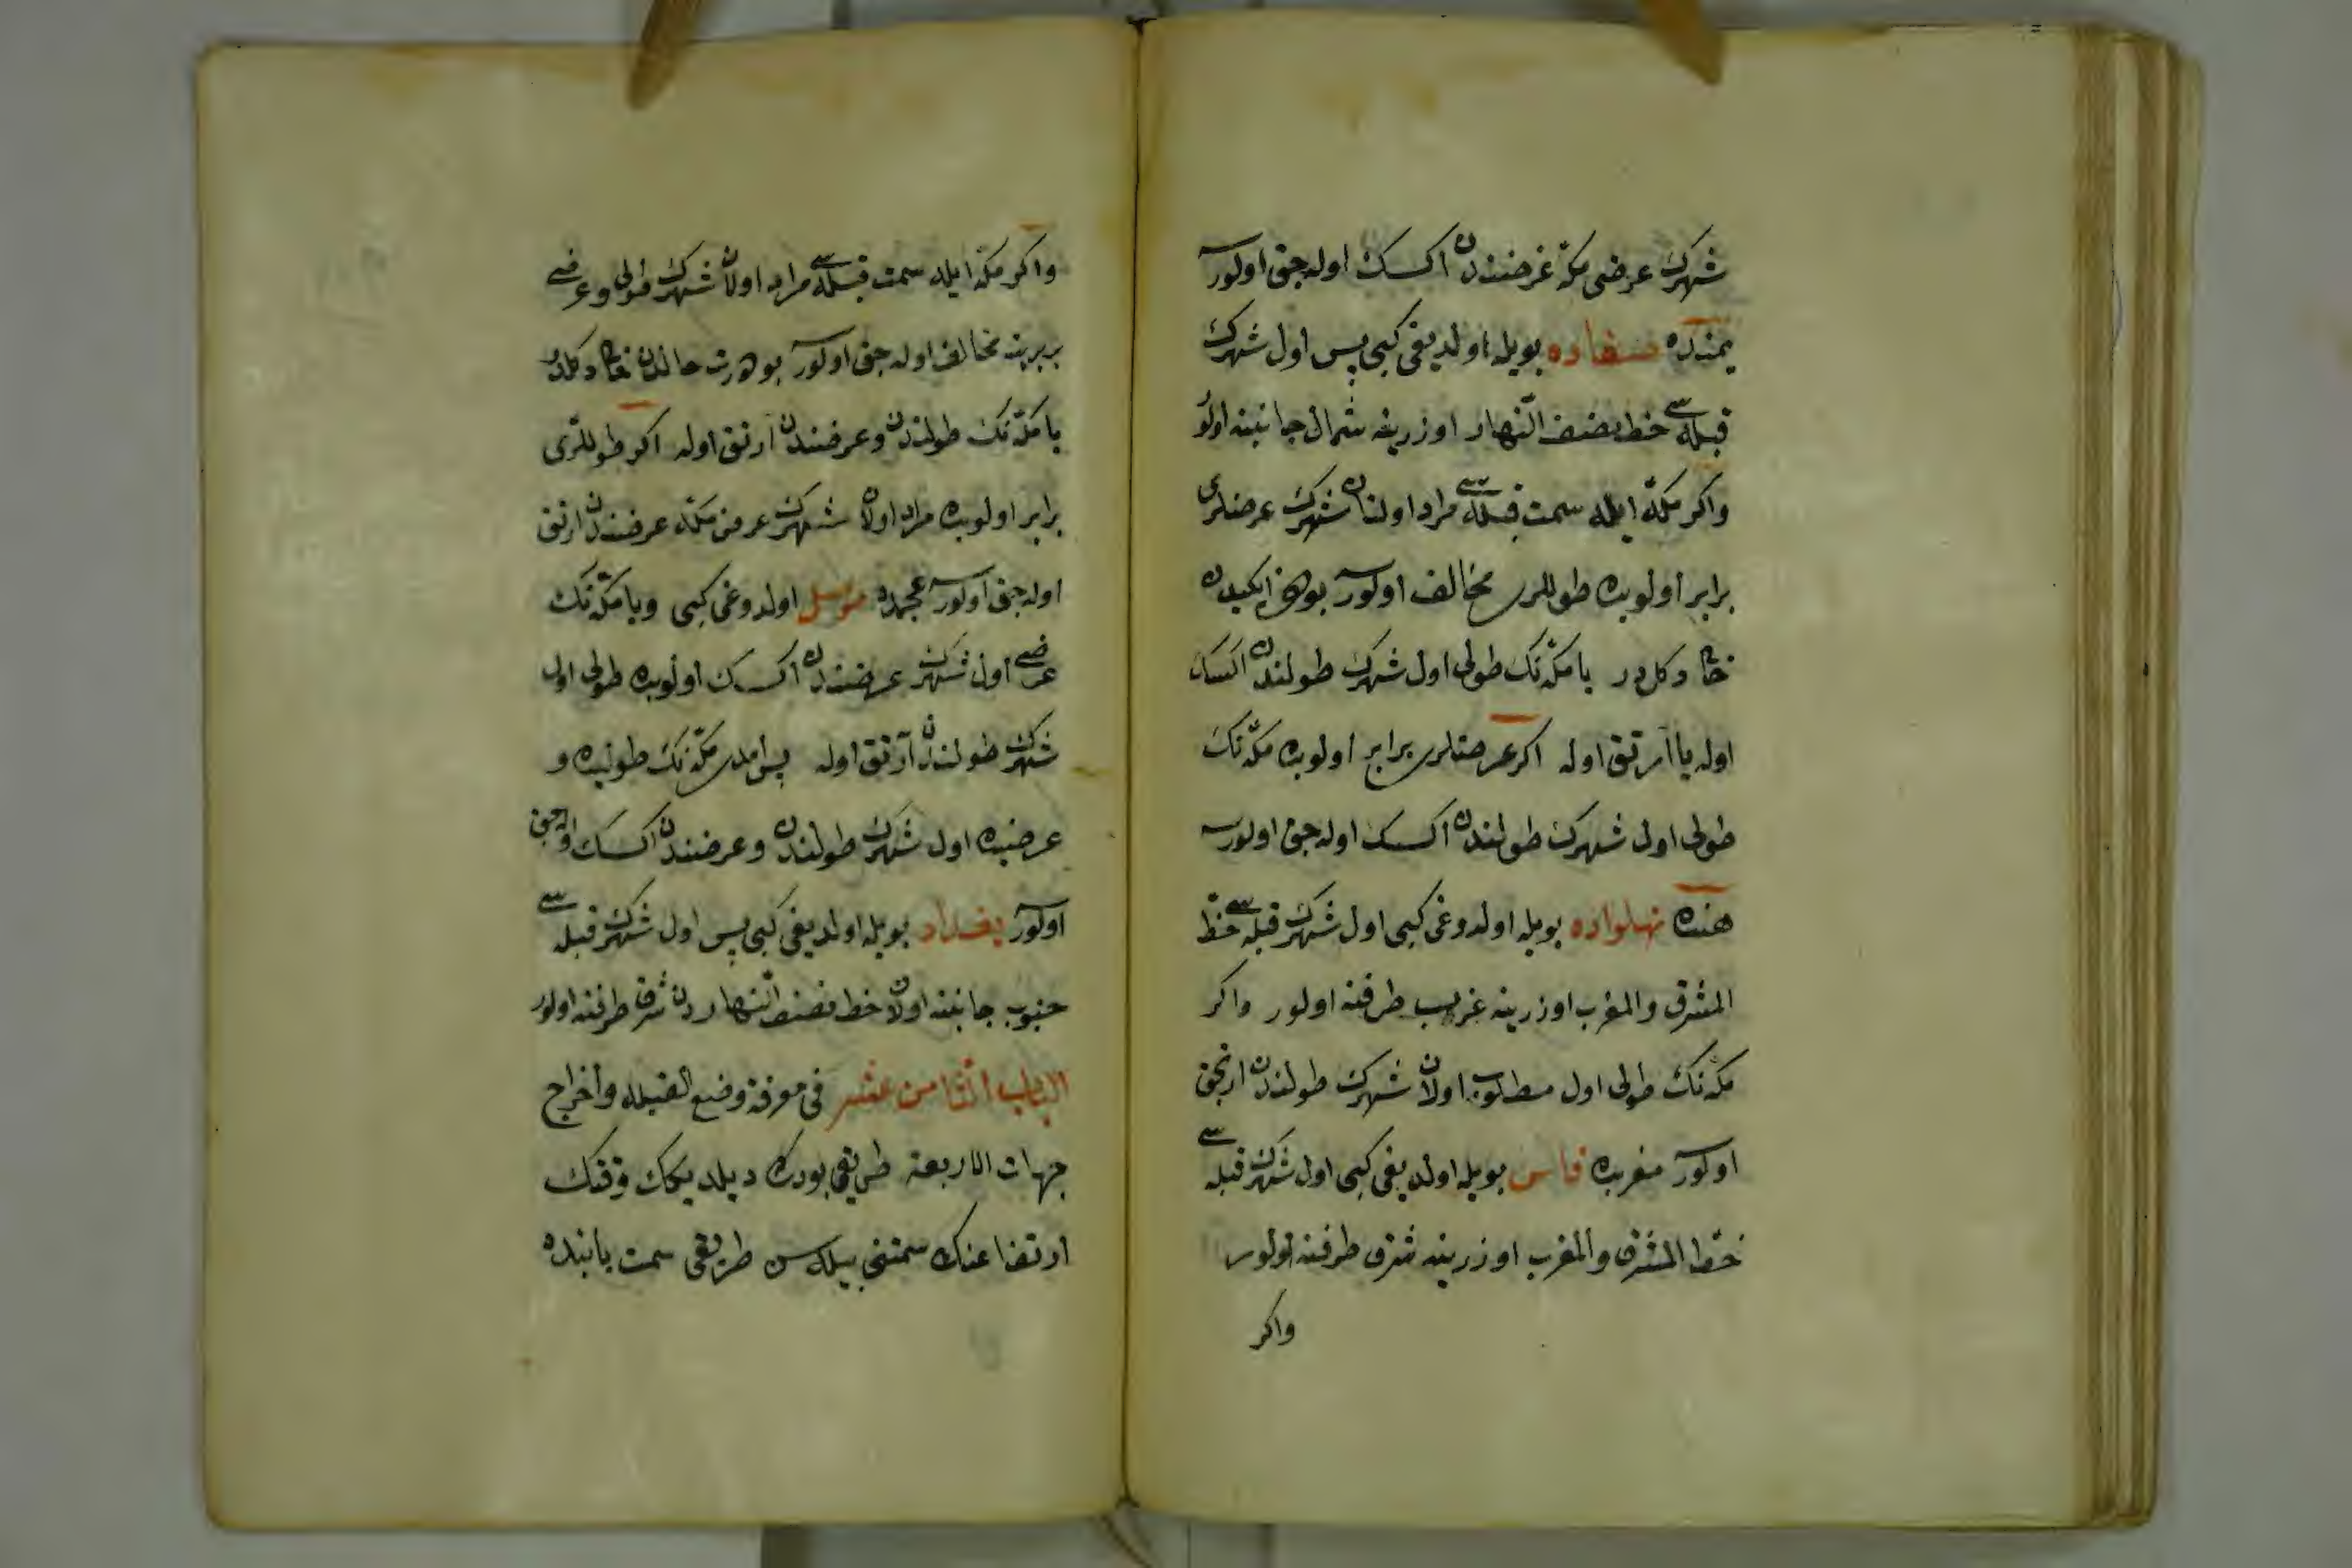 شهرك عرضى مكه عرضندن اكسك اوله جق اولورسه
يمنده صنعاده بويله اولديغى كبى پس اول شهرك
قبله سى خط نصف النهار اوزرينه شمال جانبنه اولور
واكر مكه ايله سمت قبله سى مراد اولنان شهرك عرضلرى
برابر اولوبده طوللرى مخالف اولورسه بودخى ايكيدن
خالى دكلدر يا مكه نك طولى اول شهرك طولندن اكسك
اوله يا آرتق اوله اكر عرضلرى برابر اولوبده مكه نك
طولى اول شهرك طولندن اكسك اوله جق اولورسه
هنده نهلواده بويله اولدوغى كبى اول شهرك قبله سى خط
المشرق والمغرب اوزرينه غرب طرفنه اولور واكر
مكه نك طولى اول مطلوب اولان شهرك طولندن ارتجق
اولورسه مغربده فاس بويله اولديغى كبى اول شهرك قبله سى
خط المشرق والمغرب اوزرينه شرق طرفنه اولور
واكر
واكر مكه ايله سمت قبله سى مراد اولان شهرك طولى وعرضى
بربرينه مخالف اوله جق اولورسه بو درت حالدن خالى دكلدر
يا مكه نك طولندن وعرضندن آرتق اوله اكر طوللرى
برابر اولوبده مراد اولان شهرك عرض مكه عرضندن ارتق
اوله جق اولورسه عجمده موصل اولدوغى كبى ويا مكه نك
عرضى اول شهرك عرضندن اكسك اولوبده طولى اول
شهرك طولندن آرتق اوله پس امدى مكه نك طولیده و
عرضیده اول شهرك طولندن وعرضندن اكسك اوله جق
اولورسه بغداد بويله اولديغى كبى پس اول شهرك قبله سى
جنوب جانبنه اولان خط نصف النهاردن شرق طرفنه اولور
الباب الثامن عشر فى معرفة وضع القبله وأخراج
جهات الاربعة طريقى بودركه ديلديكك وقتك
ارتفاعنك سمتنى بيله سن طريقى سمت بابنده